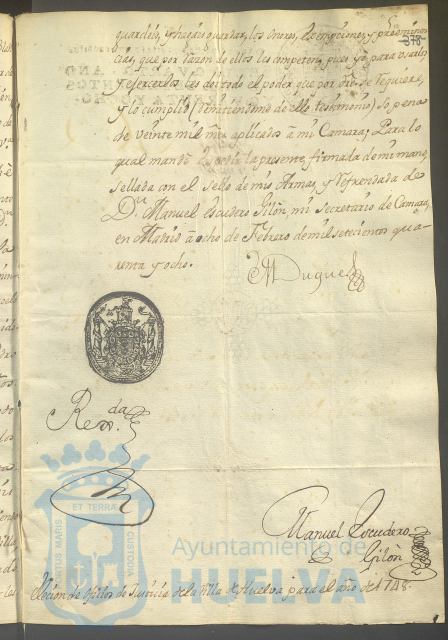 guarden, y hagan guardar, los onores, exempciones, y preeminen
378
cias, que por razon de ellos les competen, pues yo para usarlos
y exercerlos les doi todo el poder que por dro. se requiere,
y lo cumplid (remitiendome de ello testimonio) so pena
de veinte mil mrs. aplicados a mi Camara; Para lo
qual mandè expedir la presente, firmada de mi mano,
sellada con el sello de mis Armas, y refrendada de
Dn. Manuel escudero Gilòn, mi secretario de Camara,
en Madrid à ocho de Febrero de mil setecientos qua-
renta y ocho.
El Duque
Ren.da
Manuel Escudero
Gilòn
ET TERRA
MARIS
CUSTODI
Ayuntamiento de
HUELVA
Eleccion de oficios de Justicia de la Villa de Huelva para el año de 1748.